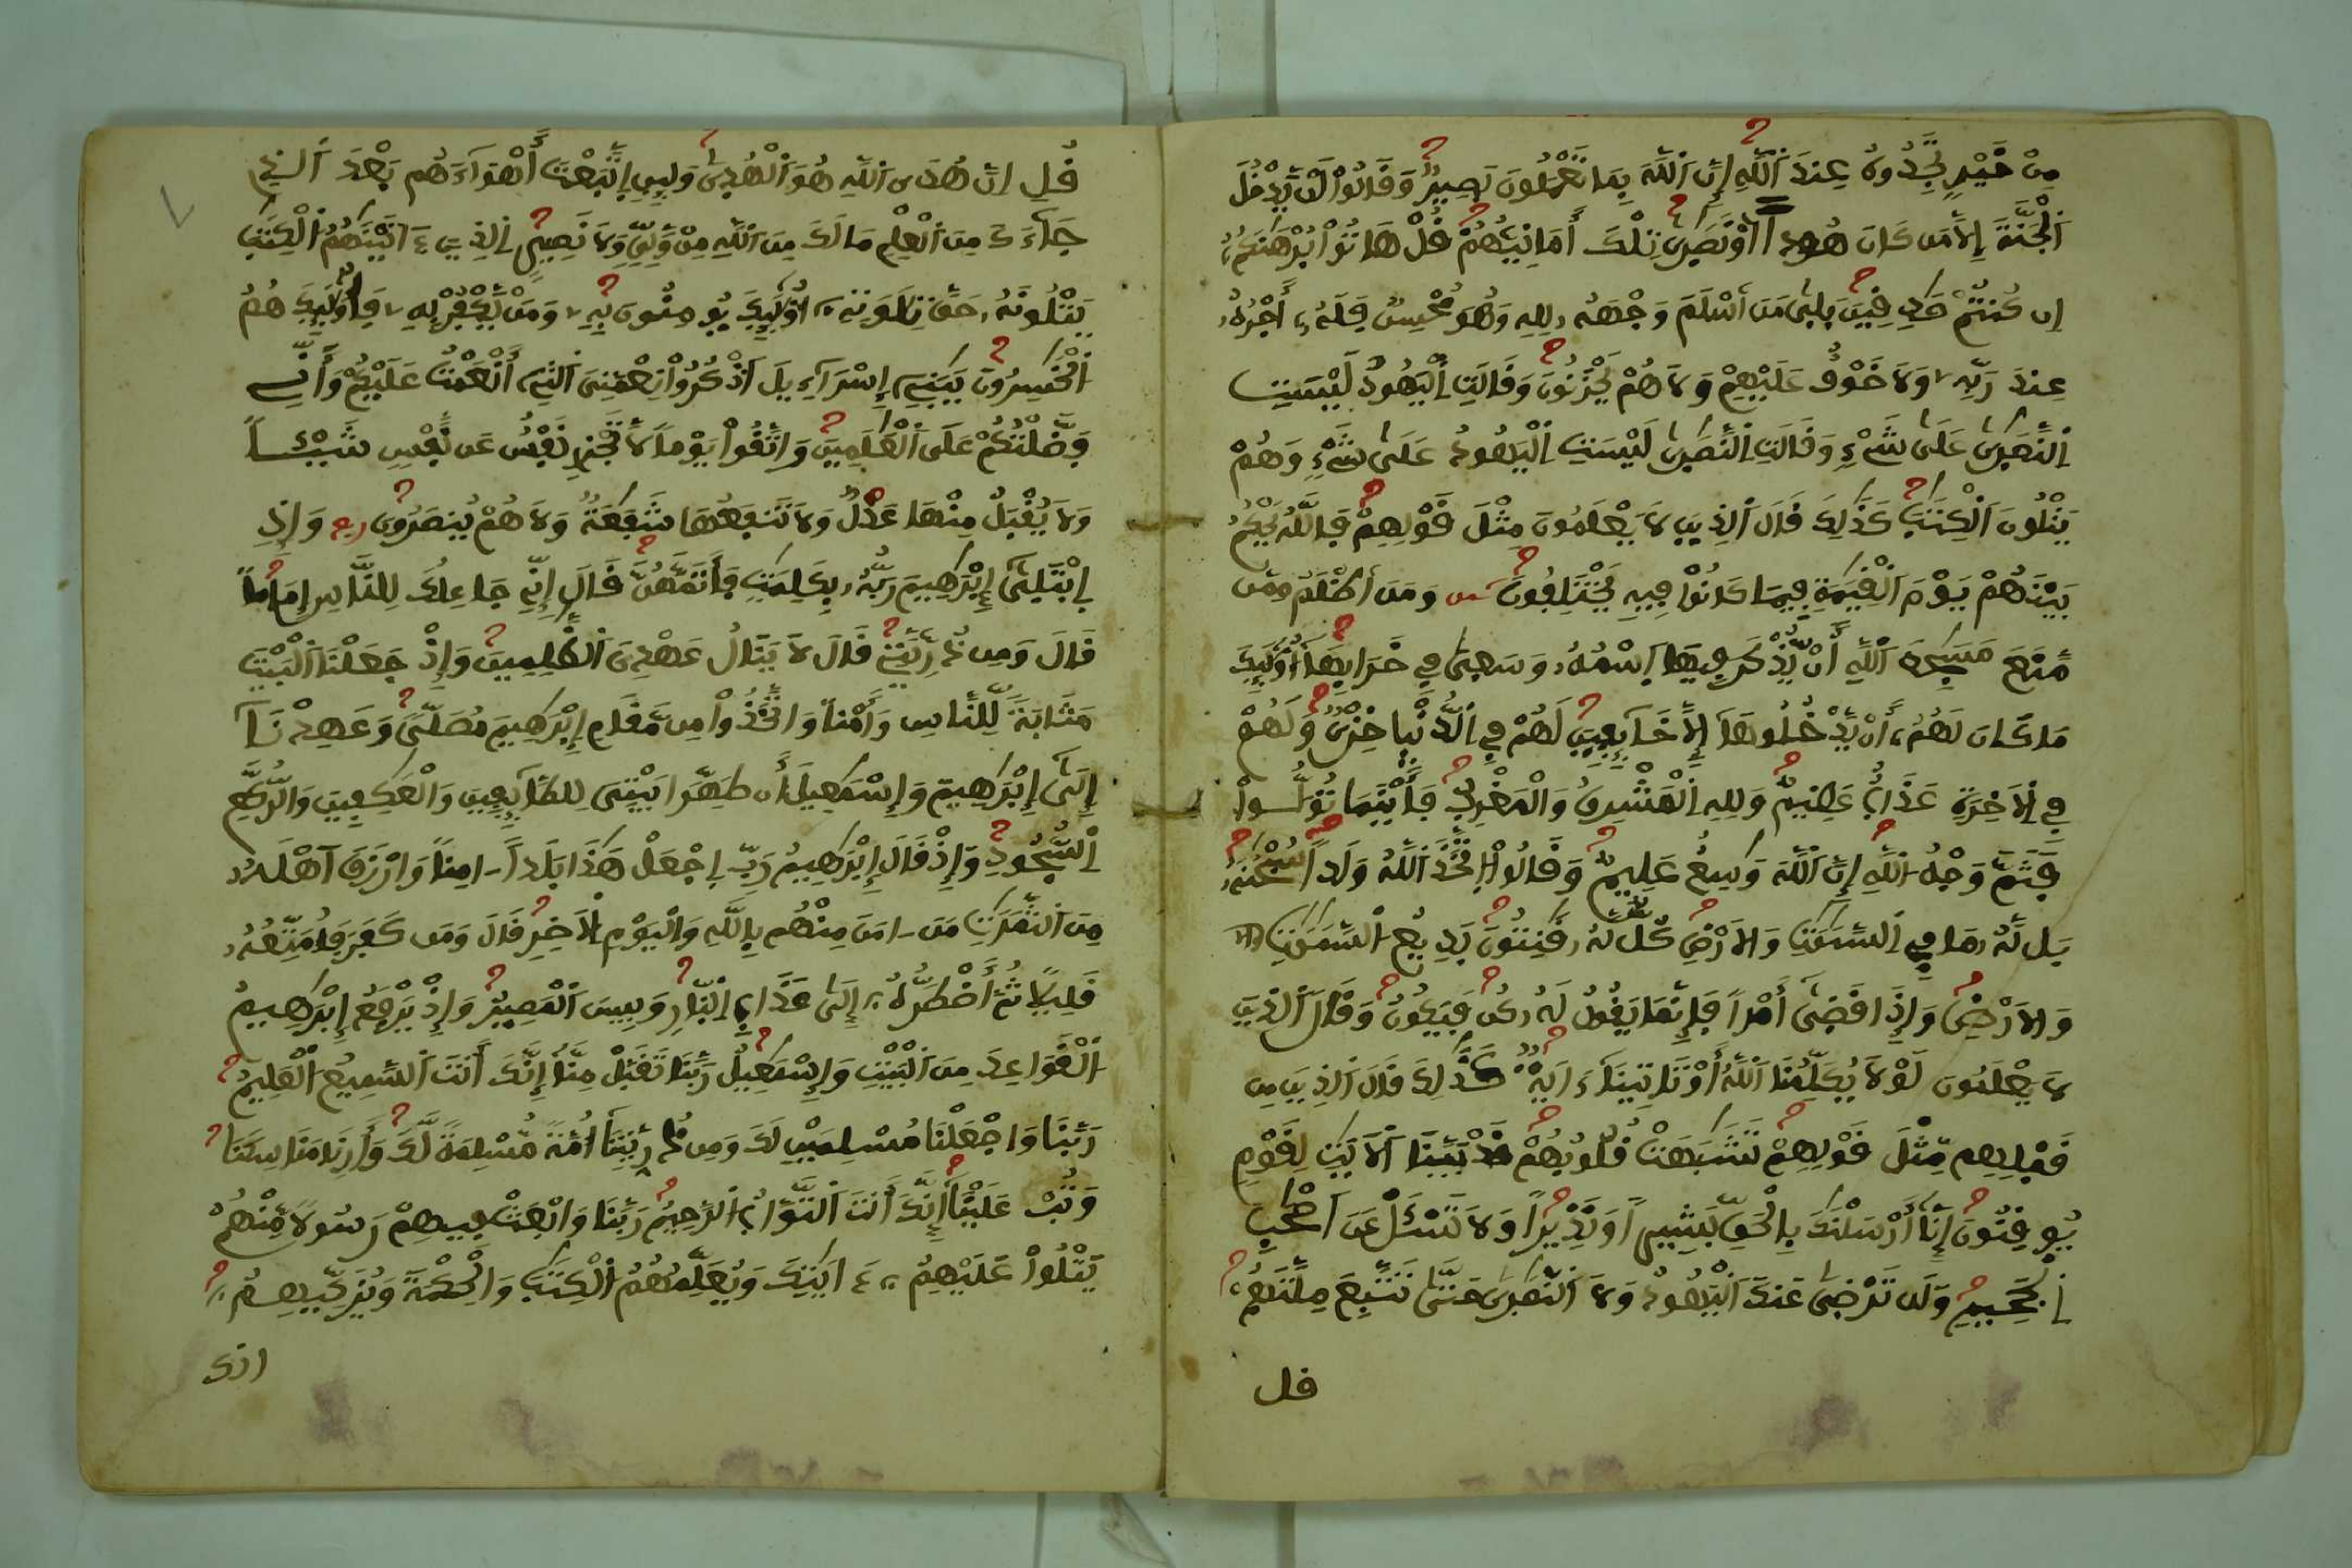 مِنْ خَيْرٍ تَجِدُوهُ عِندَ اَللَّهِ إِنَّ اَللَّهَ بِمَا تَعْمَلُونَ بَصِيرٌ وَقَالُواْ لَنْ يَّدْخُلَ
اَلْجَنَّةَ إِلاَّ مَن كَانَ هُوداً اَوْ نَصَٰرىٰ تِلْكَ أَمَانِيُّهُمْ قُلْ هَاتُواْ بُرْهَٰنَكُمُۥ
إِن كُنتُمْ صَٰدِقِينَ بَلىٰ مَنَ اَسْلَمَ وَجْهَهُۥ لِلهِ وَهُوَ مُحْسِنٌ فَلَهُۥ أَجْرُهُۥ
عِندَ رَبِّهِۦ وَلاَ خَوْفٌ عَلَيْهِمْ وَلاَ هُمْ يَحْزَنُونَ وَقَالَتِ اِلْيَهُودُ لَيْسَتِ
اِلنَّصَٰرىٰ عَلَىٰ شَےْءٍ وَقَالَتِ اِلنَّصَٰرىٰ لَيْسَتِ اِلْيَهُودُ عَلَىٰ شَےْءٍ وَهُمْ
يَتْلُونَ اَلْكِتَٰبَ كَذَٰلِكَ قَالَ اَلذِينَ لاَ يَعْلَمُونَ مِثْلَ قَوْلِهِمْ فَاللَّهُ يَحْكُمُ
بَيْنَهُمْ يَوْمَ اَلْقِيَٰمَةِ فِيمَا كَانُواْ فِيهِ يَخْتَلِفُونَ وَمَنَ اَظْلَمُ مِمَّن
مَّنَعَ مَسَٰجِدَ اَللَّهِ أَنْ يُّذْكَرَ فِيهَا اَسْمُهُۥ وَسَعىٰ فِے خَرَابِهَا أُوْلَٰئِكَ
مَا كَانَ لَهُمُۥ أَنْ يَّدْخُلُوهَا إِلاَّ خَآئِفِينَ لَهُمْ فِے اِلدُّنْيا خِزْىٌ وَلَهُمْ
فِے اِلاَخِرَةِ عَذَابٌ عَظِيمٌ وَلِلهِ اِلْمَشْرِقُ وَالْمَغْرِبُ فَأَيْنَمَا تُوَلُّواْ
فَثَمَّ وَجْهُ اُللَّهِ إِنَّ اَللَّهَ وَٰسِعٌ عَلِيمٌ وَقَالُواْ اُتَّخَذَ اَللَّهُ وَلَداً سُبْحَٰنَهُۥ
بَل لَّهُۥ مَا فِے اِلسَّمَٰوَٰتِ وَالاَرْضِ كُلٌّ لَّهُۥ قَٰنِتُونَ بَدِيعُ اُلسَّمَٰوَٰتِ
وَالاَرْضِ وَإِذَا قَضىٰ أَمْراً فَإِنَّمَا يَقُولُ لَهُۥ كُن فَيَكُونُ وَقَالَ اَلذِينَ
لاَ يَعْلَمُونَ لَوْلاَ يُكَلِّمُنَا اَللَّهُ أَوْ تَاتِينَا ءَايَةٌ كَذَٰلِكَ قَالَ اَلذِينَ مِن
قَبْلِهِم مِّثْلَ قَوْلِهِمْ تَشَٰبَهَتْ قُلُوبُهُمْ قَدْ بَيَّنَّا اَلاَيَٰتِ لِقَوْمٍ
يُوقِنُونَ إِنَّا أَرْسَلْنَٰكَ بِالْحَقِّ بَشِيراً وَنَذِيراً وَلاَ تَسْـَٔلْ عَنَ اَصْحَٰبِ
اِلْجَحِيمِ وَلَن تَرْضىٰ عَنكَ اَلْيَهُودُ وَلاَ اَلنَّصَٰرىٰ حَتَّىٰ تَتَّبِعَ مِلَّتَهُمْ
قل
قُلِ اِنَّ هُدَى اَللَّهِ هُوَ اَلْهُدىٰ وَلَئِنِ اِتَّبَعْتَ أَهْوَآءَهُم بَعْدَ اَلذِے
جَآءَكَ مِنَ اَلْعِلْمِ مَا لَكَ مِنَ اَللَّهِ مِنْ وَّلِىٍّ وَلاَ نَصِيرٍ اِلذِينَ ءَاتَيْنَٰهُمُ اُلْكِتَٰبَ
يَتْلُونَهُۥ حَقَّ تِلاَوَتِهِۦ أُوْلَٰئِكَ يُومِنُونَ بِهِۦ وَمَنْ يَّكْفُرْ بِهِۦ فَأُوْلَٰئِكَ هُمُ
اُلْخَٰسِرُونَ يَٰبَنِےٓ إِسْرَآءِيلَ اَذْكُرُواْ نِعْمَتِىَ اَلتِےٓ أَنْعَمْتُ عَلَيْكُمْ وَأَنِّے
فَضَّلْتُكُمْ عَلَى اَلْعَٰلَمِينَ وَاتَّقُواْ يَوْماً لاَّ تَجْزِے نَفْسٌ عَن نَّفْسٍ شَيْـٔاً
وَلاَ يُقْبَلُ مِنْهَا عَدْلٌ وَلاَ تَنفَعُهَا شَفَٰعَةٌ وَلاَ هُمْ يُنصَرُونَ وَإِذِ
اِبْتَلىٰٓ إِبْرَٰهِيمَ رَبُّهُۥ بِكَلِمَٰتٍ فَأَتَمَّهُنَّ قَالَ إِنِّے جَاعِلُكَ لِلنَّاسِ إِمَاماً
قَالَ وَمِن ذُرِّيَّتِے قَالَ لاَ يَنَالُ عَهْدِى اَلظَّٰلِمِينَ وَإِذْ جَعَلْنَا اَلْبَيْتَ
مَثَابَةً لِّلنَّاسِ وَأَمْناً وَاتَّخَذُواْ مِن مَّقَامِ إِبْرَٰهِيمَ مُصَلّىً وَعَهِدْنَآ
إِلَىٰٓ إِبْرَٰهِيمَ وَإِسْمَٰعِيلَ أَن طَهِّرَا بَيْتِىَ لِلطَّآئِفِينَ وَالْعَٰكِفِينَ وَالرُّكَّعِ
اِلسُّجُودِ وَإِذْ قَالَ إِبْرَٰهِيمُ رَبِّ اِجْعَلْ هَٰذَا بَلَداً اٰمِناً وَارْزُقَ اَهْلَهُۥ
مِنَ اَلثَّمَرَٰتِ مَنَ اٰمَنَ مِنْهُم بِاللَّهِ وَالْيَوْمِ اِلاَخِرِ قَالَ وَمَن كَفَرَ فَأُمَتِّعُهُۥ
قَلِيلاً ثُمَّ أَضْطَرُّهُۥٓ إِلَىٰ عَذَابِ اِلنّارِ وَبِيسَ اَلْمَصِيرُ وَإِذْ يَرْفَعُ إِبْرَٰهِيمُ
اُلْقَوَاعِدَ مِنَ اَلْبَيْتِ وَإِسْمَٰعِيلُ رَبَّنَا تَقَبَّلْ مِنَّا إِنَّكَ أَنتَ اَلسَّمِيعُ اُلْعَلِيمُ
رَبَّنَا وَاجْعَلْنَا مُسْلِمَيْنِ لَكَ وَمِن ذُرِّيَّتِنَا أُمَّةً مُّسْلِمَةً لَّكَ وَأَرِنَا مَنَاسِكَنَا
وَتُبْ عَلَيْنَا إِنَّكَ أَنتَ اَلتَّوَّابُ اُلرَّحِيمُ رَبَّنَا وَابْعَثْ فِيهِمْ رَسُولاً مِّنْهُمْ
يَتْلُواْ عَلَيْهِمُۥٓ ءَايَٰتِكَ وَيُعَلِّمُهُمُ اُلْكِتَٰبَ وَالْحِكْمَةَ وَيُزَكِّيهِمُۥ
انك